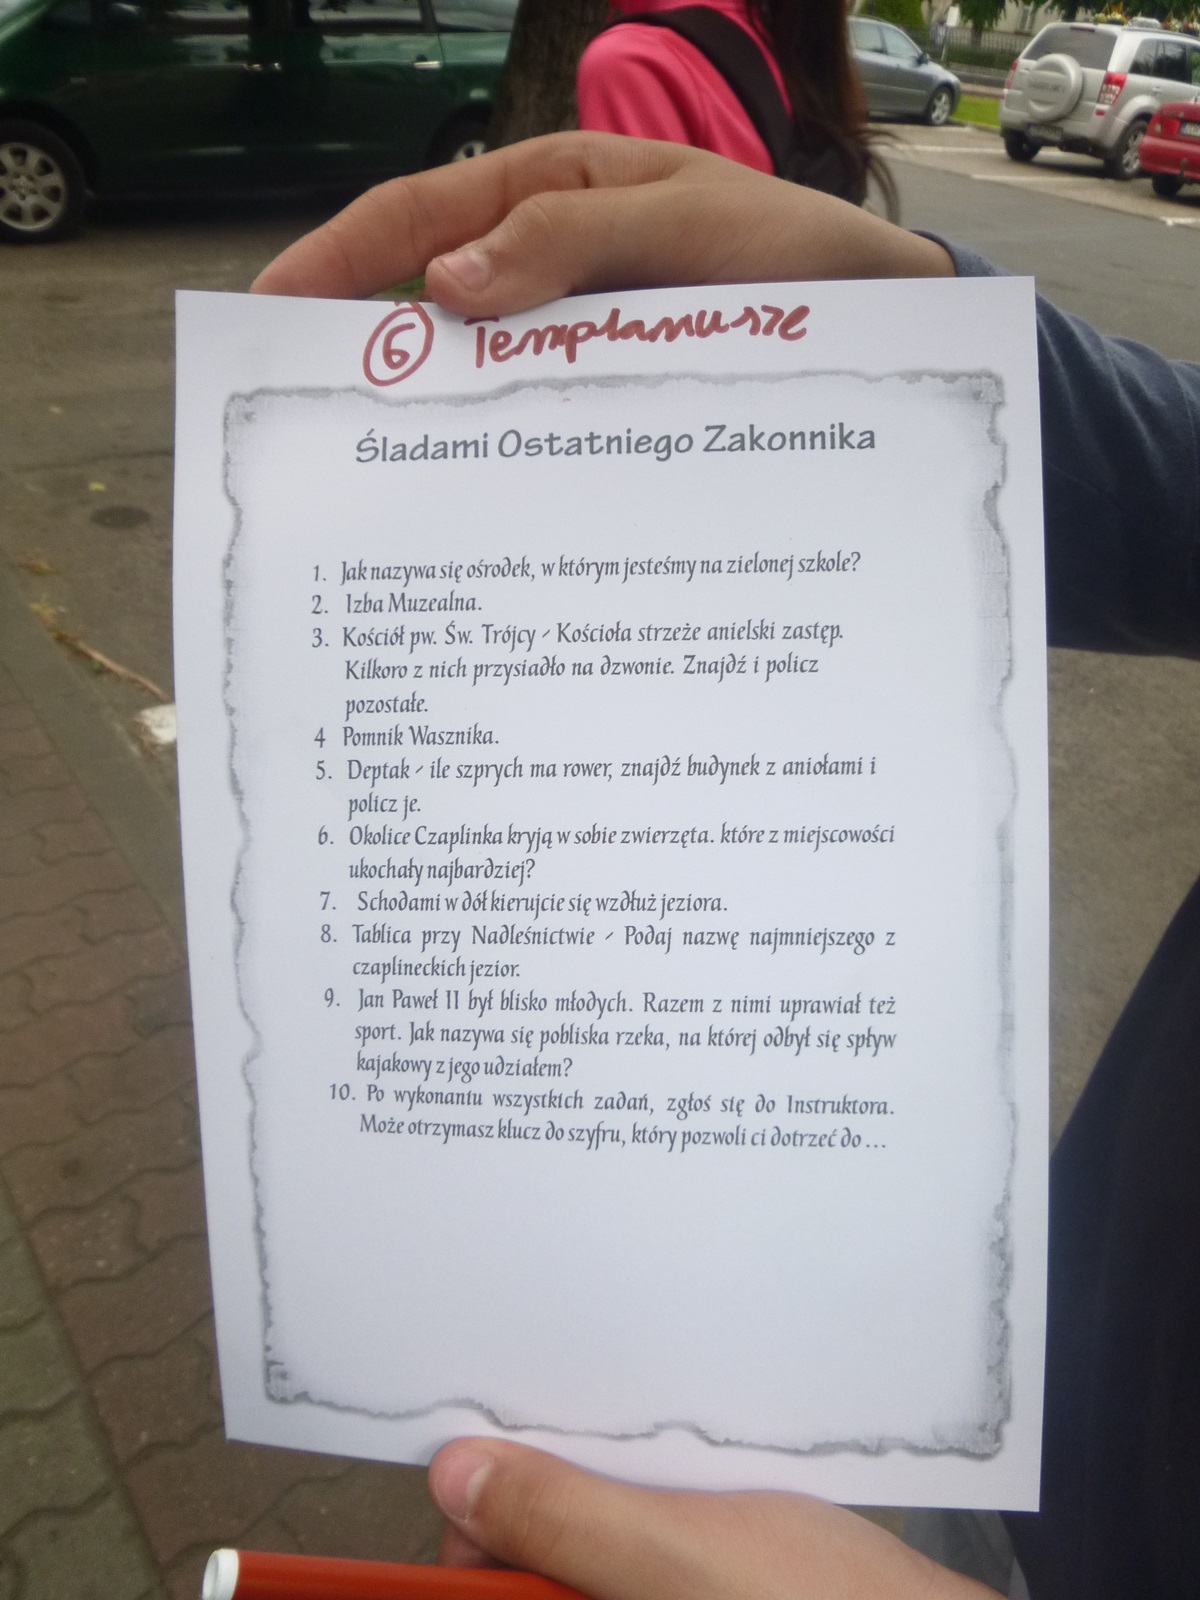 6 Templariusze
Śladami Ostatniego Zakonnika
1. Jak nazywa się ośrodek, w którym jesteśmy na zielonej szkole?
2. Izba Muzealna.
3. Kościół pw. Św. Trójcy - Kościoła strzeże anielski zastęp.
Kilkoro z nich przysiadło na dzwonie. Znajdź i policz
pozostałe.
4 Pomnik Wasznika.
5. Deptak - ile szprych ma rower, znajdź budynek z aniołami i
policz je.
6. Okolice Czaplinka kryją w sobie zwierzęta. które z miejscowości
ukochały najbardziej?
7. Schodami w dół kierujcie się wzdłuż jeziora.
8. Tablica przy Nadleśnictwie - Podaj nazwę najmniejszego z
czaplineckich jezior.
9. Jan Paweł II był blisko młodych. Razem z nimi uprawiał też
sport. Jak nazywa się pobliska rzeka, na której odbył się spływ
kajakowy z jego udziałem?
10. Po wykonaniu wszystkich zadań, zgłoś się do Instruktora.
Może otrzymasz klucz do szyfru, który pozwoli ci dotrzeć do ...